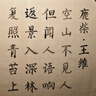 鹿柴·王維
空山不見人
但聞人語響
返景入深林
復照青苔上